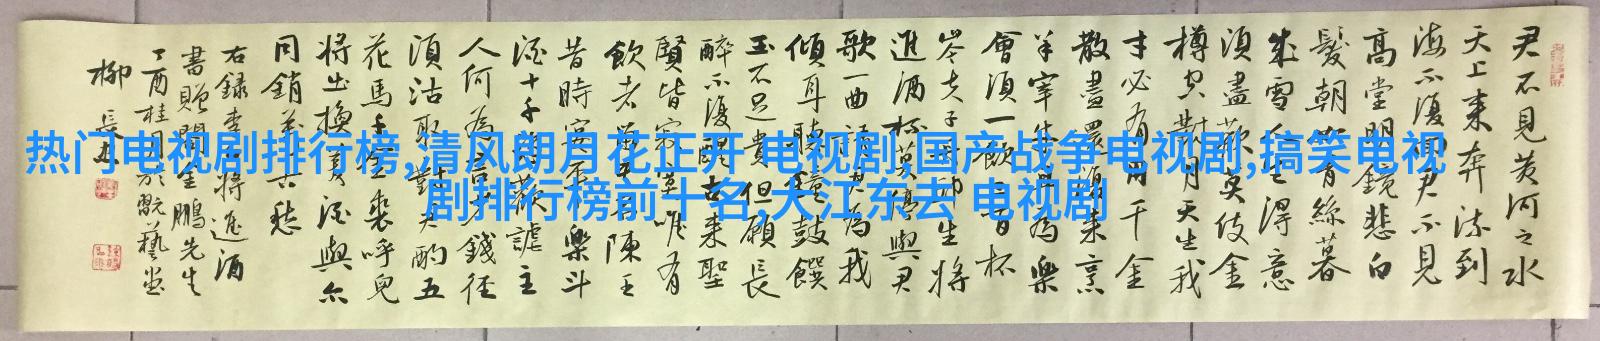 热门电视剧排行榜,清风朗月花正开 电视剧,国产战争电视剧,搞笑电视
剧排行榜前十名,大江东去 电视剧
君不見黄河之水
天上来奔流到
海不復回君不見
高堂明鏡悲白
髮朝如青絲暮
成雪人生得意
須盡歡莫使金
樽空對月天生我
才必有用千金
散盡還復来烹
羊宰牛且為樂
會須一飲三百杯
岑夫子丹丘生將
進酒杯莫停與君
歌一曲請君為我
傾耳聽鐘鼓饌
玉不足貴但願長
醉不復醒古来聖
賢皆寂寞唯有
飲者留其名陳王
昔時宴平樂斗
酒十千恣歡謔主
人何為言少錢径
須沽取對君酌五
花馬千金裘呼兒
将出換美酒與尔
同銷萬古愁
右録李白將進酒
書贈金鵬先生
丁酉桂月於翫藝堂
柳長忠